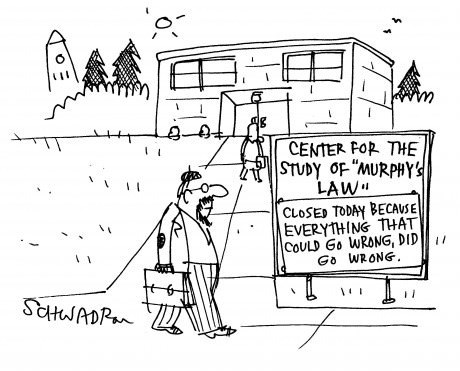 CENTER FOR THE
STUDY OF "MURPHY'S
LAW"
CLOSED TODAY BECAUSE
EVERYTHING THAT
COULD GO WRONG, DID
GO WRONG.
SCHWADRON